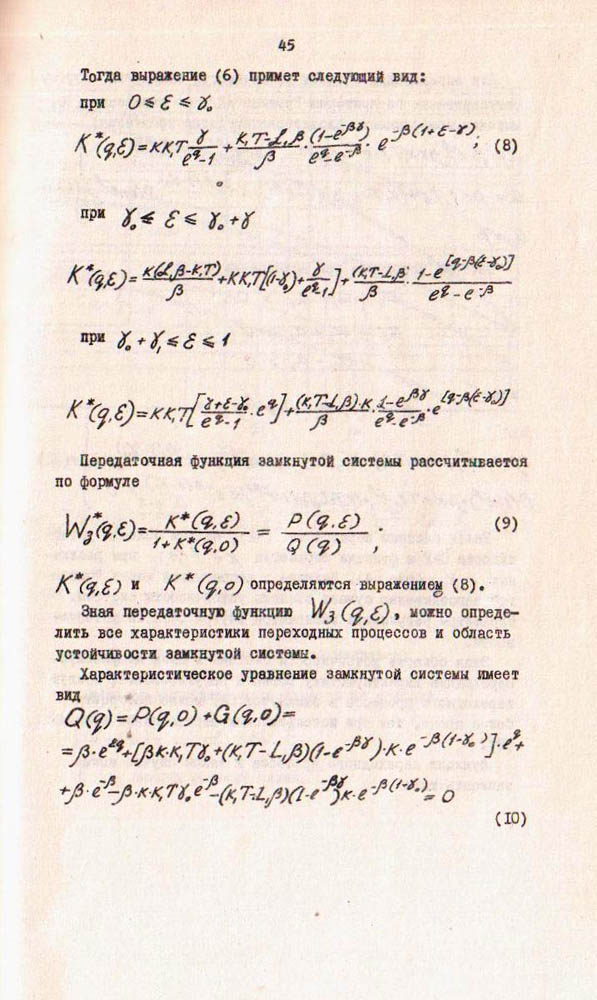 45
Тогда выражение (6) примет следующий вид:
при 0 ≤ ℰ ≤ γ₀
K*(q,ℰ)=KK₁T γ/(e^q-1) + (K₁T-L₁β)/β · (1-e^(-βγ))/(e^q-e^(-β)) · e^(-β(1+ℰ-γ)); (8)
при γ₀ ≤ ℰ ≤ γ₀+γ
K*(q,ℰ)= K(L₁β-K₁T)/β +KK₁T[(1-γ₀)+ γ/(e^q-1)]+ (K₁T-L₁β)/β · (1-e^[q-β(ℰ-γ₀)])/(e^q-e^(-β))
при γ₀+γ₁ ≤ ℰ ≤ 1
K*(q,ℰ)=KK₁T[(γ+ℰ-γ₀)/(e^q-1) · e^q]+ (K₁T-L₁β)·K/β · (1-e^(βγ))/(e^q-e^(-β)) · e^[q-β(ℰ-γ₀)]
Передаточная функция замкнутой системы рассчитывается
по формуле
W₃*(q,ℰ)= K*(q,ℰ)/(1+K*(q,0)) = P(q.ℰ)/Q(q) ; (9)
K*(q,ℰ) и K*(q,0) определяются выражением (8).
Зная передаточную функцию W₃(q,ℰ), можно опреде-
лить все характеристики переходных процессов и область
устойчивости замкнутой системы.
Характеристическое уравнение замкнутой системы имеет
вид
Q(q)=P(q,0)+G(q,0)=
=β·e^(2q)+[βK·K₁Tγ₀+(K₁T-L₁β)(1-e^(-βγ))·K·e^(-β(1-γ₀))]·e^q+
+β·e^(-β)-β·K·K₁Tγ₀e^(-β)-(K₁T-L₁β)(1-e^(-βγ))K·e^(-β(1-γ₀))=0
(10)